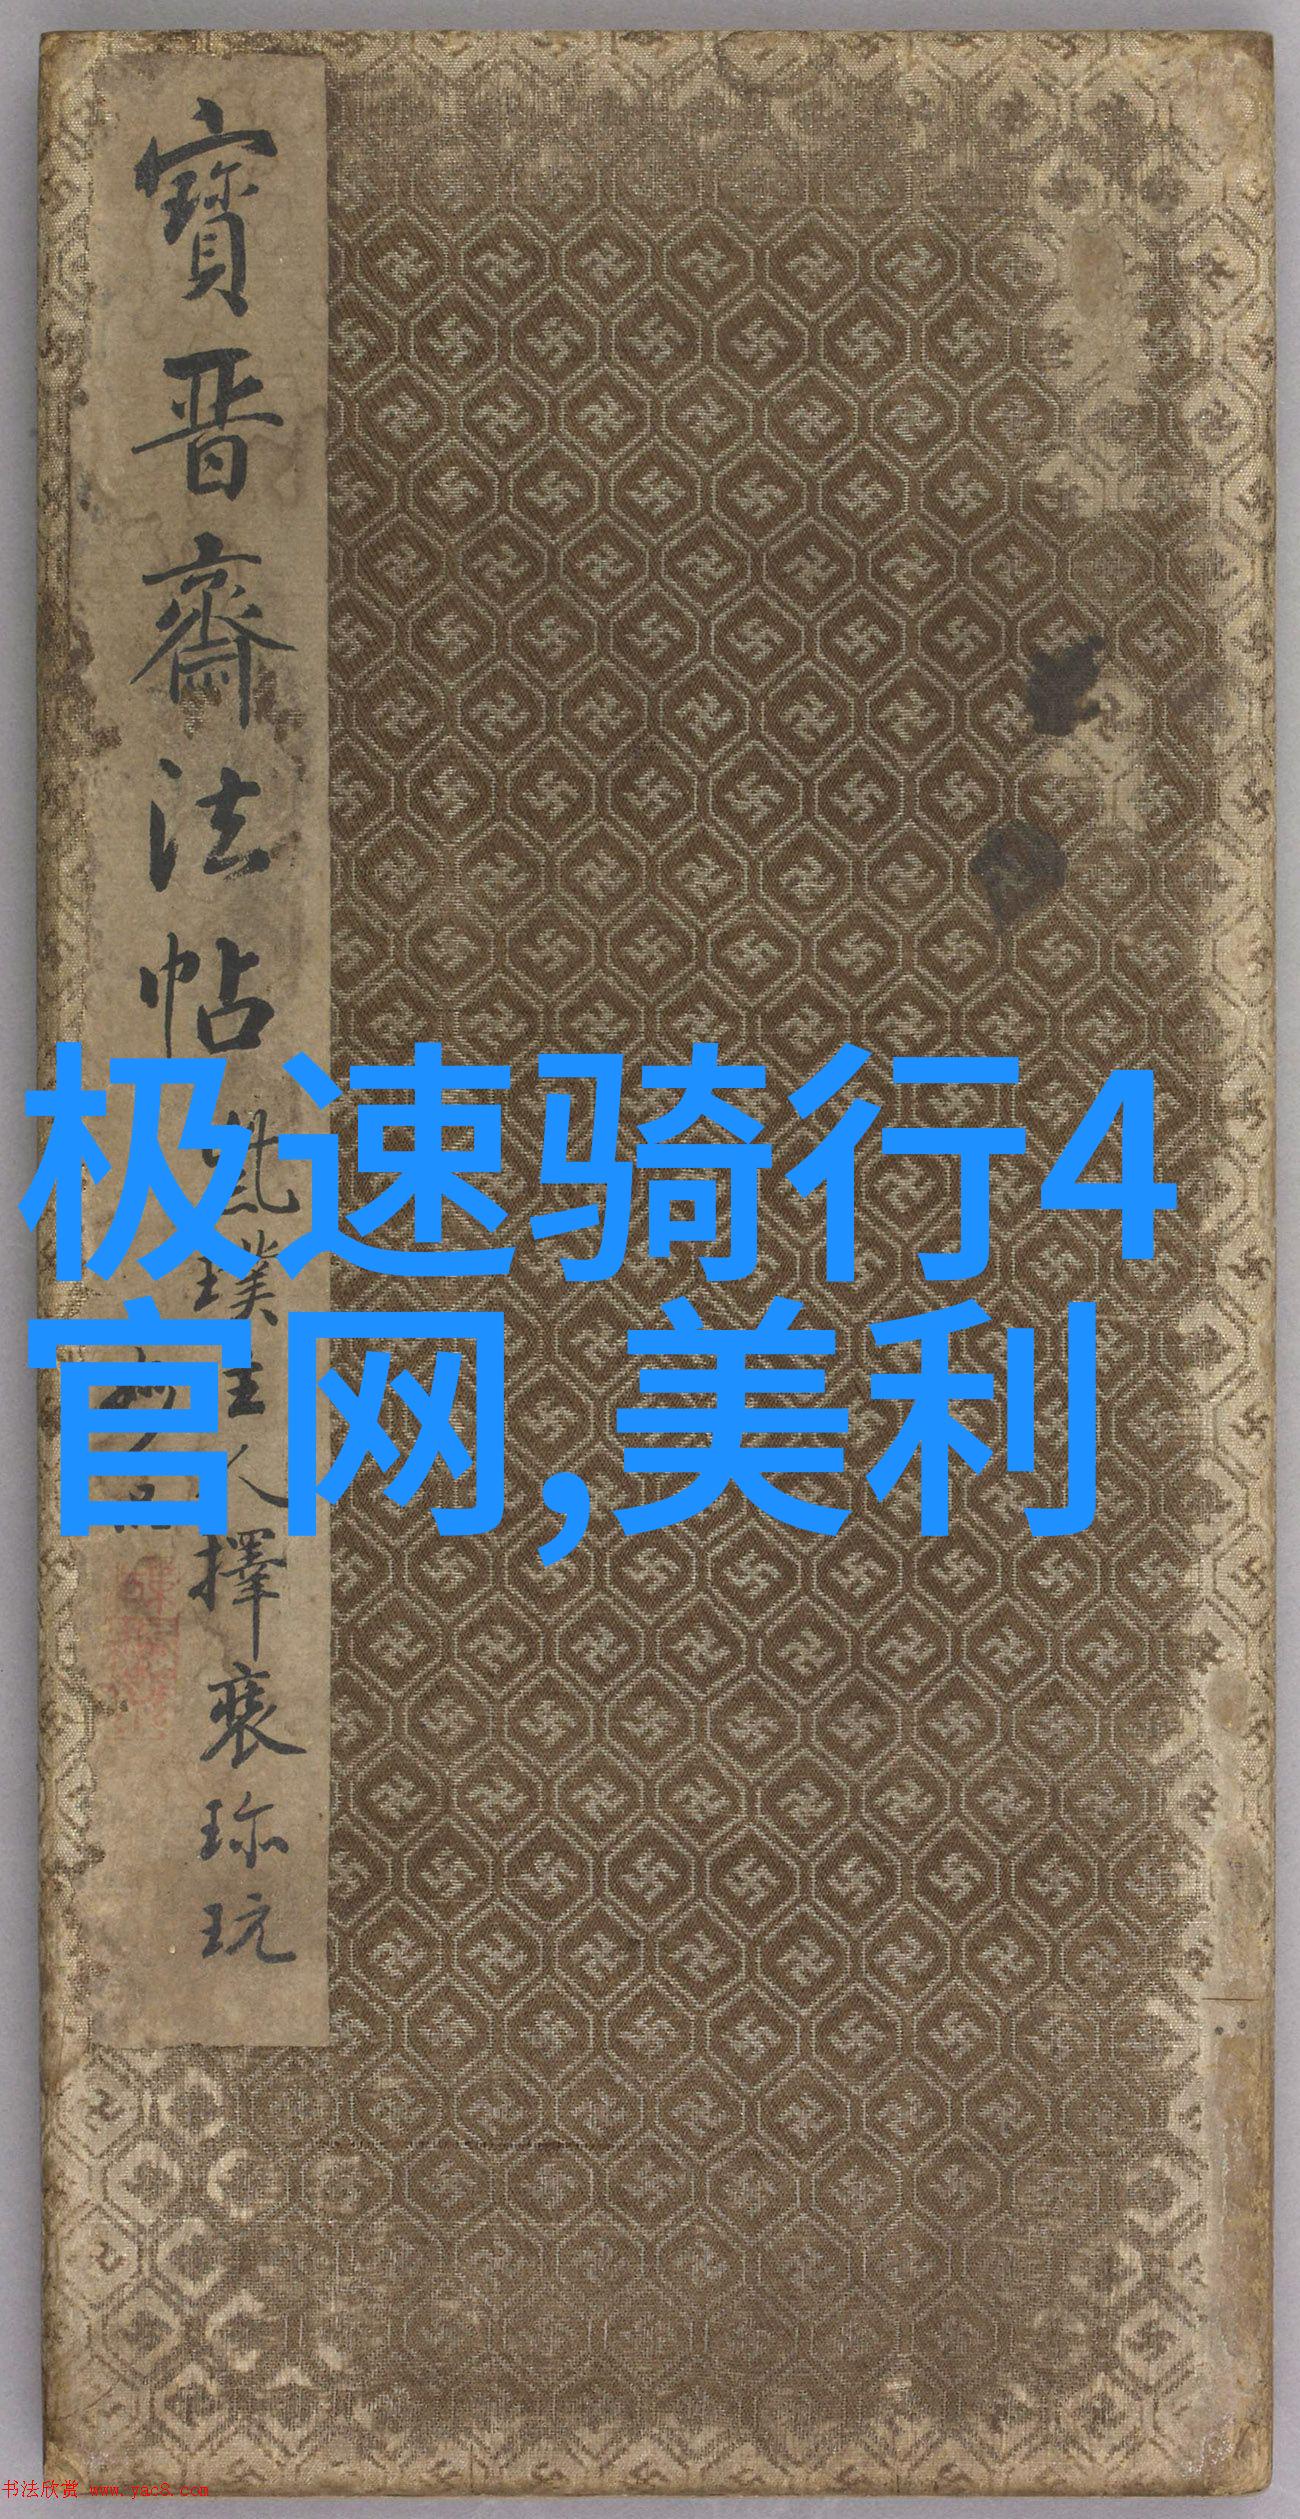 寶晉齋法帖
璞主人擇裘珎玩
极速骑行4
官网,美利
书法欣赏 www.yac8.com